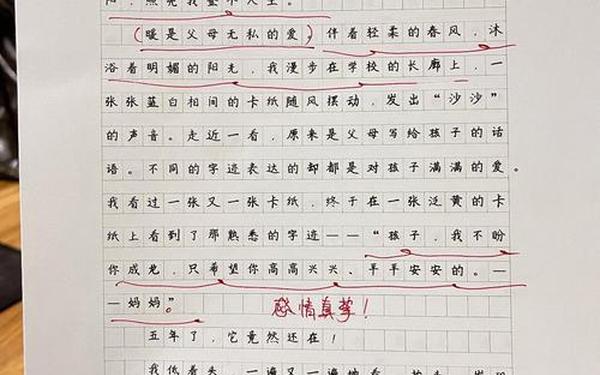 （暖是父母无私的爱）伴着轻柔的春风，沐
浴着明媚的阳光，我漫步在学校的长廊上，一
张张蓝白相间的卡纸随风摆动，发出“沙沙”
的声音。走近一看，原来是父母写给孩子的话
语。不同的字迹表达的却都是对孩子满满的爱。
我看过一张又一张卡纸，终于在一张泛黄的卡
纸上看到了那熟悉的字迹——“孩子，我不盼
你成龙，只希望你高高兴兴、平平安安的。—
—妈妈”。
感情真挚！
五年了，它竟然还在！